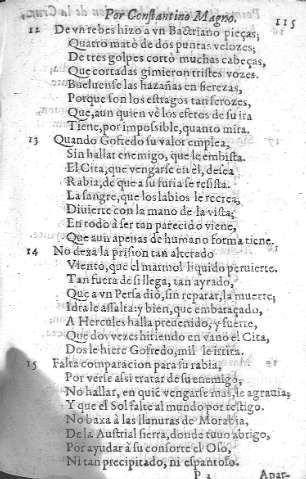 Por Constantino Magno. 115
12 De vn rebes hizo a vn Bactriano pieças;
Quatro mató de dos puntas velozes;
De tres golpes cortò muchas cabeças,
Que cortadas gimieron tristes vozes.
Bueluense las hazañas en fierezas,
Porque son los estragos tan ferozes,
Que, aun quien vè los efetos de su ira
Tiene, por impossible, quanto mira.
13 Quando Gofredo su valor emplea,
Sin hallar enemigo, que le embista.
El Cita, que vengarse en èl, dessea
Rabia, de que a su furia se resista.
La sangre, que los labios le recrea,
Diuierte con la mano de la vista;
En todo a ser tan parecido viene,
Que aun apenas de humano forma tiene.
14 No dexa la prision tan alterado
Viento, que el marmol liquido peruierte.
Tan fuera de si llega, tan ayrado,
Que a vn Persa diò, sin reparar, la muerte;
Idra le assalta: y bien, que embaraçado,
A Hercules halla preuenido, y fuerte,
Que dos vezes hiriendo en vano el Cita,
Dos le hiere Gofredo, mil le irrita.
15 Falta comparacion para su rabia,
Por verse assi tratar de su enemigo,
No hallar, en quiē vengarse mas, le agrauia;
Y que el Sol falte al mundo por testigo.
No baxa à las llanuras de Morabia,
De la Austrial sierra, donde tuuo abrigo,
Por ayudar à su consorte el Oso,
Ni tan precipitado, ni espantoso.
P 3 Apar-